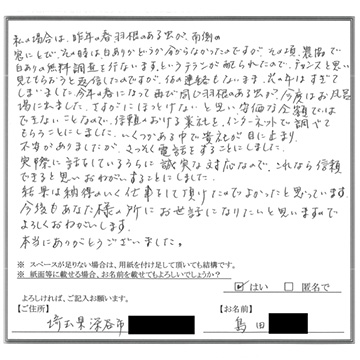 私の場合は、昨年の春羽根のある虫が、雨側の
窓にとび、その時は白ありかどうか分からなかったのですが、その頃、農協で
白ありの無料調査を行ないます、というチラシが配られたので、チャンスと思い
見てもらうと返信したのですが、何の連絡もないまま、1年はすぎて
しまいました。今年の春になって再び同じ羽根のある虫が、今度はお風呂
場に出ました。さすがにほっとけないと思い安価な金額では
できないことなので、信頼のおける業社を、インターネットで調べて
もらうことにしました。いくつかある中で貴社が目に止まり
不安がありましたが、さっそく電話をすることにしました。
実際に話をしているうちに誠実な対応なので、これなら信頼
できると思いおねがいすることにしました。
結果は納得のいく仕事をして頂けたのでよかったと思っています。
今後もあなた様の所にお世話になりたいと思いますので
よろしくおねがいします。
本当にありがとうございました。
※ スペースが足りない場合は、用紙を付け足して頂いても結構です。
※ 紙面等に載せる場合、お名前を載せてもよろしいでしょうか?
はい 匿名で
よろしければ、ご記入お願いします。
【ご住所】 【お名前】
埼玉県深谷市 島田